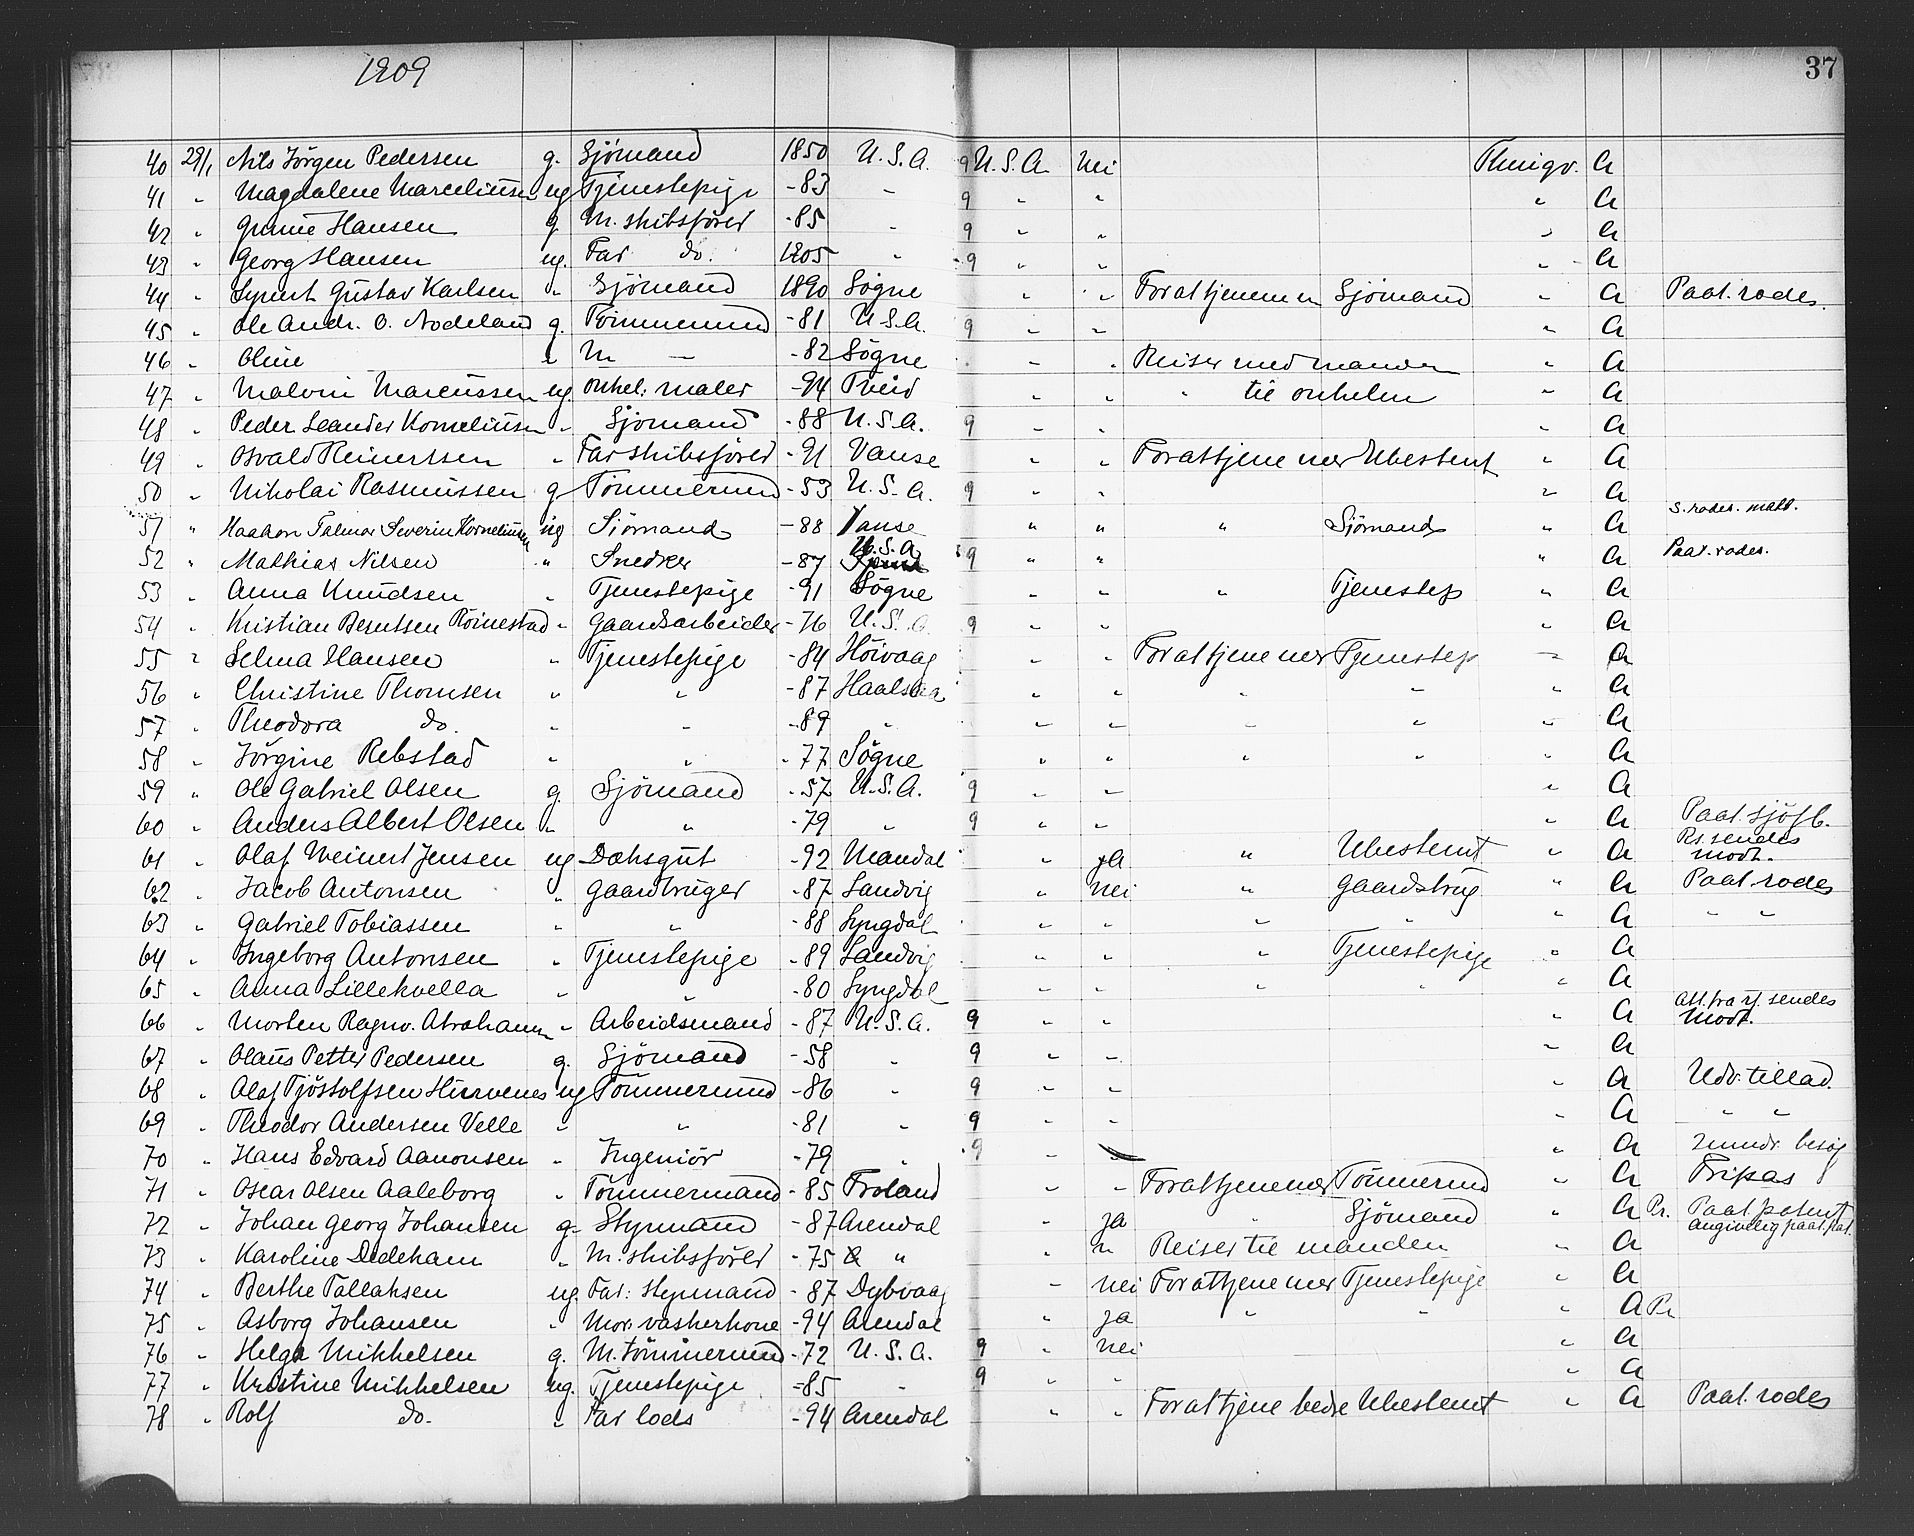 1909
37
40 29/1 Nils Jörgen Pedersen g. Sjömand 1850 U.S.A. 9 U.S.A nei Thingv. A
41 " Magdalene Marceliusen ug Tjenestepige -83 " 9 " " " A
42 " Gunne Hansen g. M. skibsförer -85 " 9 " " " A
43 " Georg Hansen ug. Far do. 1905 " 9 " " " A
44 " Syvert Gustav Karlsen " Sjömand 1890 Søgne " " For at tjene mer Sjömand " A Paat. rodes.
45 " Ole Andr. O. Nodeland g. Tömmermand -81 U.S.A. 9 " " " A
46 " Oline " M — -82 Søgne " " Reiser med manden " A
47 " Malvin Marcussen ug. onkel: maler -94 Tveid " " " til onkelen " A
48 " Peder Leander Korneliusen " Sjömand -88 U.S.A. 9 " " " A
49 " Osvald Reinertsen " Far skibsförer -91 Vanse " " For at tjene mer Ubestemt " A
50 " Nikolai Rasmussen g Tömmermand -53 U.S.A. 9 " " " A
51 " Haakon Talmar Severin Korneliusen ug Sjömand -88 Vanse " " " Sjömand " A S. rodes. matr.
52 " Mathias Nilsen " Snedker -87 U.S.A 9 " " " A Paat. rodes.
53 " Anna Knudsen " Tjenestepige -91 Søgne " " " Tjenestep " A
54 " Kristian Berntsen Röinestad " Gaardsarbeider -76 U.S.A 9 " " " A
55 " Selma Hansen " Tjenestepige -84 Höivaag " " For at tjene mer Tjenestep " A
56 " Christine Thomsen " " -87 Haalsaa " " " " " A
57 " Theodora do. " " -89 " " " " " " A
58 " Jörgine Rebstad " " -77 Søgne " " " " " A
59 " Ole Gabriel Olsen g. Sjömand -57 U.S.A. 9 " " " A
60 " Anders Albert Olsen " " -79 " 9 " " " A Paat. sjöfb.
61 " Olaf Meinert Jensen ug Dæksgut -92 Mandal " ja " Ubestemt " A Rs. sendes modt.
62 " Jacob Antonsen " Gaardbruger -87 Landvig " nei " Gaardsbrug " A Paat. rodes
63 " Gabriel Tobiassen " " -88 Lyngdal " " " " " A " "
64 " Ingeborg Antonsen " Tjenestepige -89 Landvig " " " Tjenestepige " A
65 " Anna Lillekvella " " -80 Lyngdal " " " " " A
66 " Morten Ragnv. Abrahamsen " Arbeidsmand -87 U.S.A. 9 " " A Att. fra sj. sendes modt.
67 " Olaus Petter Pedersen g. Sjömand -58 " 9 " " " A
68 " Olaf Tjöstolfsen Hurvenes ug Tömmermand -86 " 9 " " " A Udv. tillad.
69 " Theodor Andersen Velle " " -81 " 9 " " " A " "
70 " Hans Edvard Aanonsen " Ingeniör -79 " 9 " " " A 2 mndr. besög
71 " Oscar Olsen Aaleborg " Tömmermand -85 Froland " " For at tjene mer Tömmermd " A Fripas
72 " Johan Georg Johansen g. Styrmand -87 Arendal " ja " Sjömand " A Pr. Paat. patent angivelig paat. pat.
73 " Karoline Dedekam " M. skibsförer -75 " " " Reiser til manden " A
74 " Berthe Tallaksen ug. Far: styrmand -87 Dybvaag " nei For at tjene mer Tjenestepige " A
75 " Asborg Johansen " Mor vaskerkone -94 Arendal " ja " " " A Pr
76 " Helga Mikkelsen g. M. Tömmermand -72 U.S.A. 9 " nei " A
77 " Kristine Mikkelsen ug. Tjenestepige -85 " 9 " " " A
78 " Rolf do. " Far lods -94 Arendal " " For at tjene bedre Ubestemt " A Paat. rodes